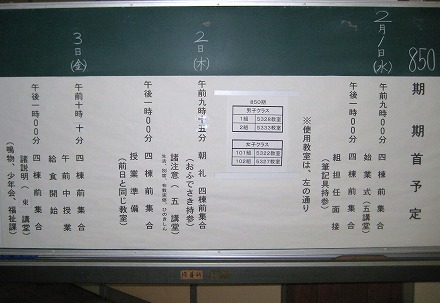 850期 期首予定
2月1日(水)
午前九時00分 四棟前集合
始業式(五講堂)
午後一時00分 四棟前集合
組担任面接
(筆記具持参)
※使用教室は、左の通り
850期
男子クラス
1組 5328教室
2組 5333教室
女子クラス
101組 5322教室
102組 5327教室
2日(木)
午前九時十五分 朝礼 四棟前集合
(おふでさき持参)
諸注意(五講堂)
午後一時00分 四棟前集合
授業準備
(前日と同じ教室)
3日(金)
午前十時十分 四棟前集合
午前中授業
給食開始
午後一時00分 四棟前集合
諸説明(東講堂)
(鳴物、少年会、福祉課)